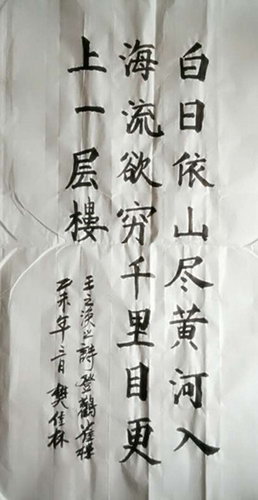 白日依山尽黄河入
海流欲穷千里目更
上一层楼
王之涣之詩登鸛雀樓
乙未年三月樊佳林